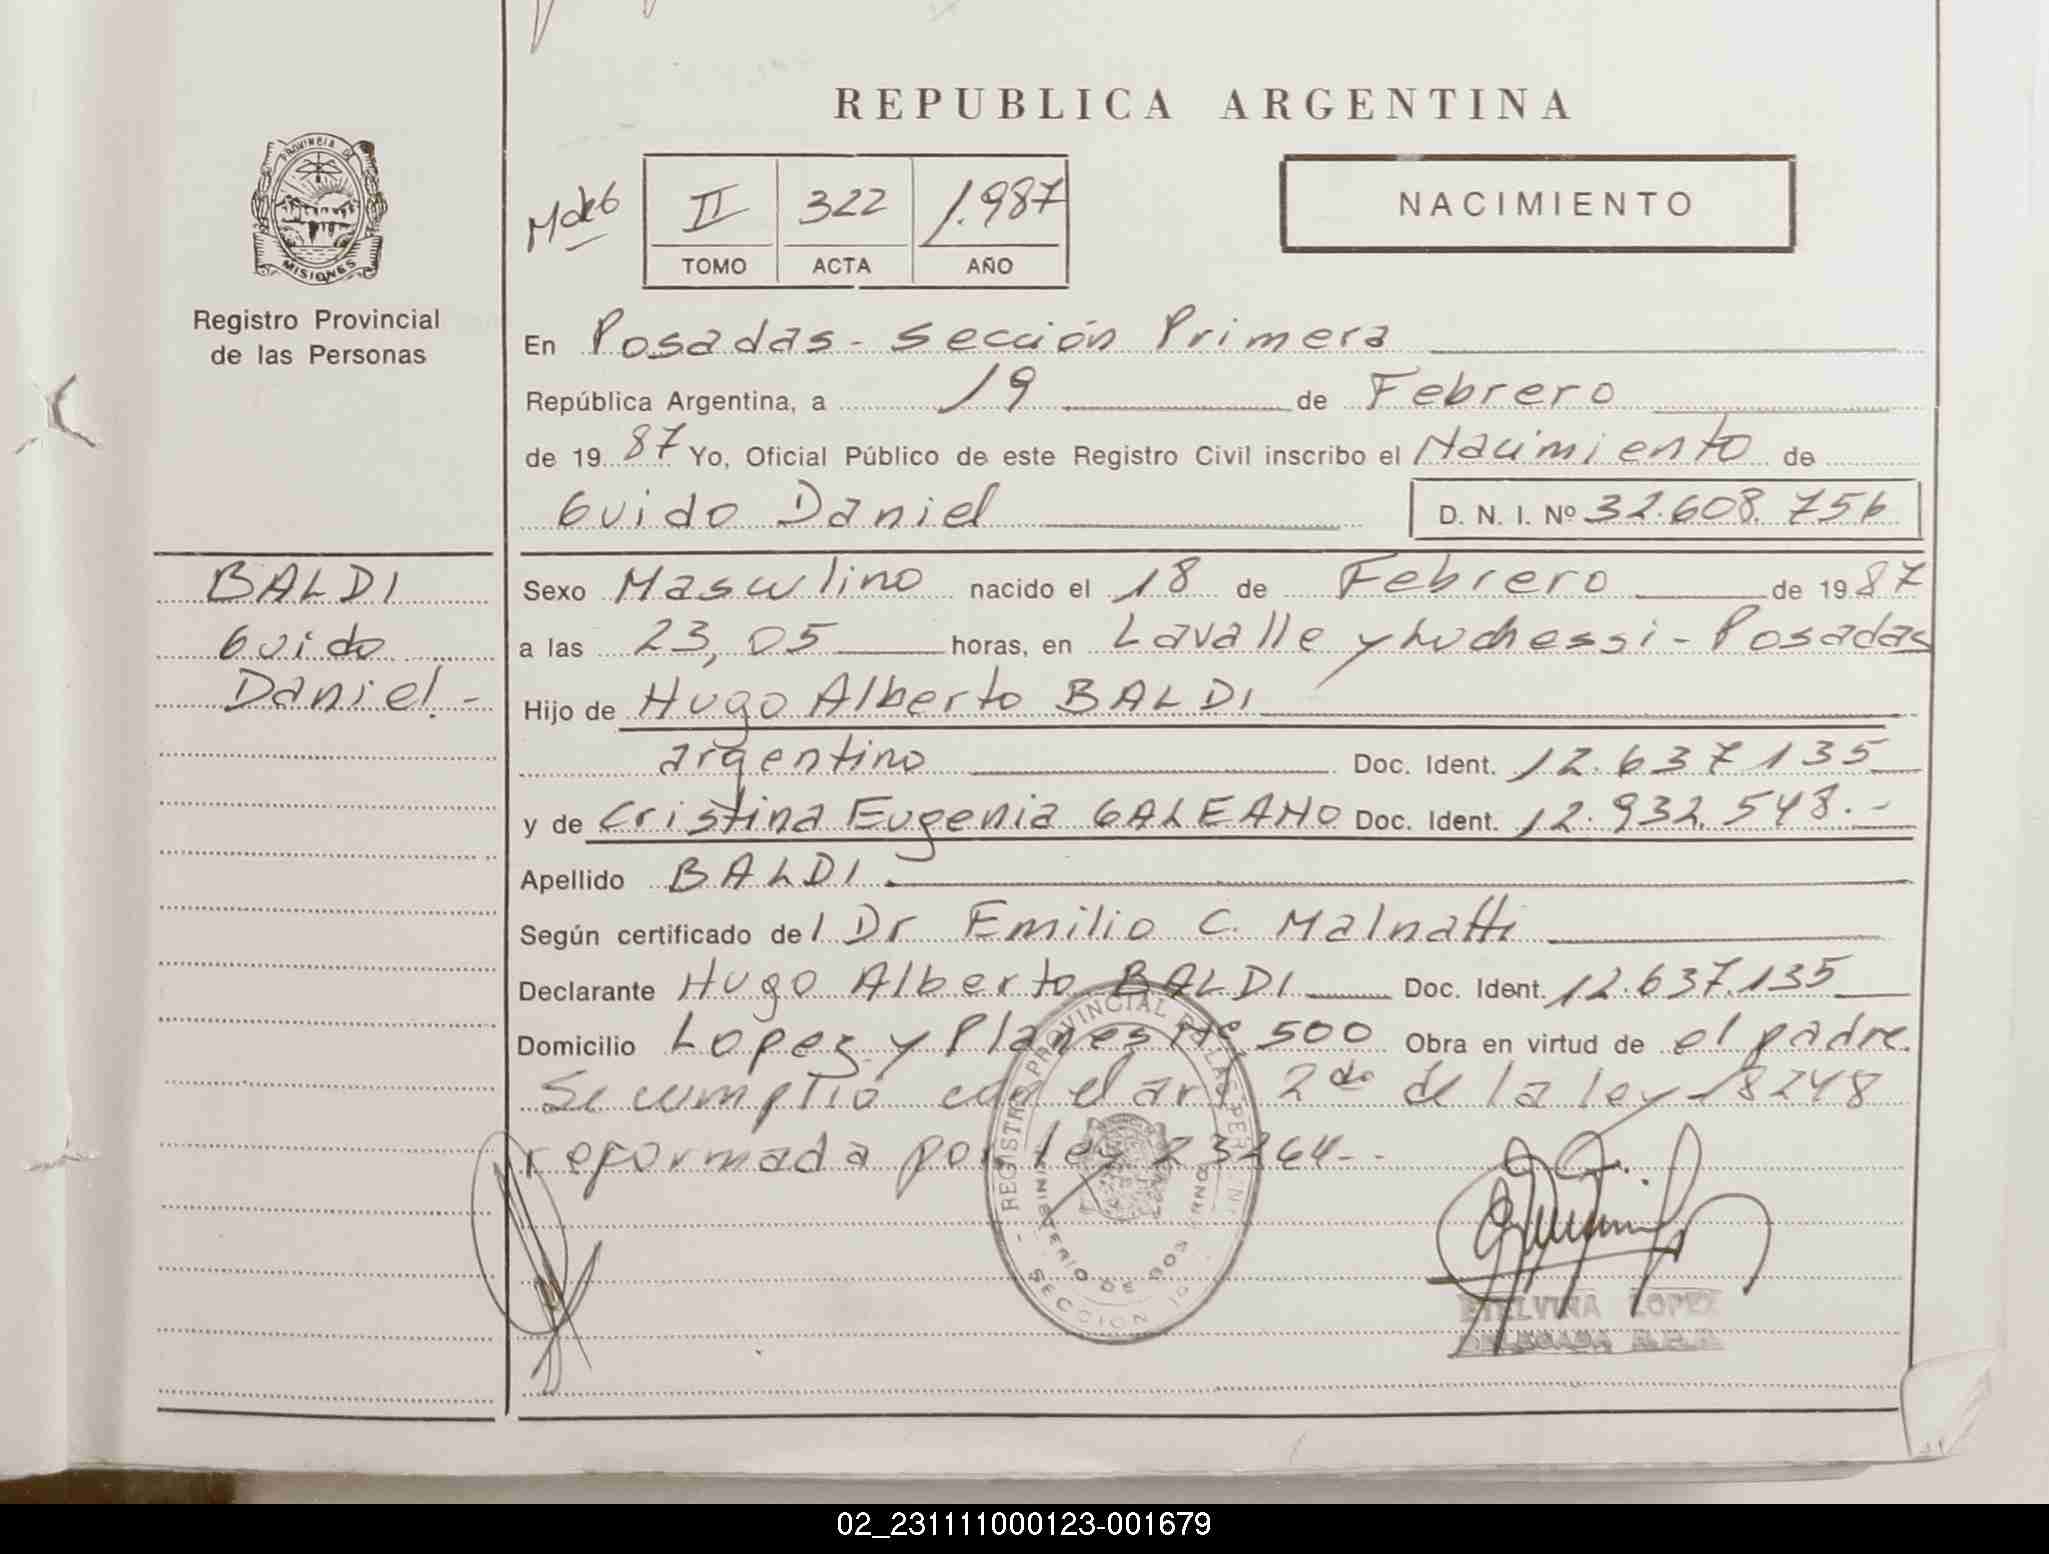 REPUBLICA ARGENTINA
PROVINCIA DE
MISIONES
Registro Provincial
de las Personas
II 322 1.987
TOMO ACTA AÑO
NACIMIENTO
En Posadas - sección Primera
República Argentina, a 19 de Febrero
de 19 87 Yo, Oficial Público de este Registro Civil inscribo el Nacimiento de
Guido Daniel D. N. I. Nº 32.608.756
BALDI
Guido
Daniel.-
Sexo Masculino nacido el 18 de Febrero de 19 87
a las 23,05 horas, en Lavalle y Luchessi - Posadas
Hijo de Hugo Alberto BALDI
argentino Doc. Ident. 12.637.135
y de Cristina Eugenia GALEANO Doc. Ident. 12.932.548.-
Apellido BALDI
Según certificado del Dr Emilio C. Malnatti
Declarante Hugo Alberto BALDI Doc. Ident. 12.637.135
Domicilio Lopez y Planes Nº 500 Obra en virtud de el padre.
Se cumplió con el art 2do de la ley 18248
reformada por ley 23264--
REGISTRO PROVINCIAL DE LAS PERSONAS
MINISTERIO DE GOBIERNO
SECCION 1º
ETELVINA LOPEZ
DELEGADA
02_231111000123-001679